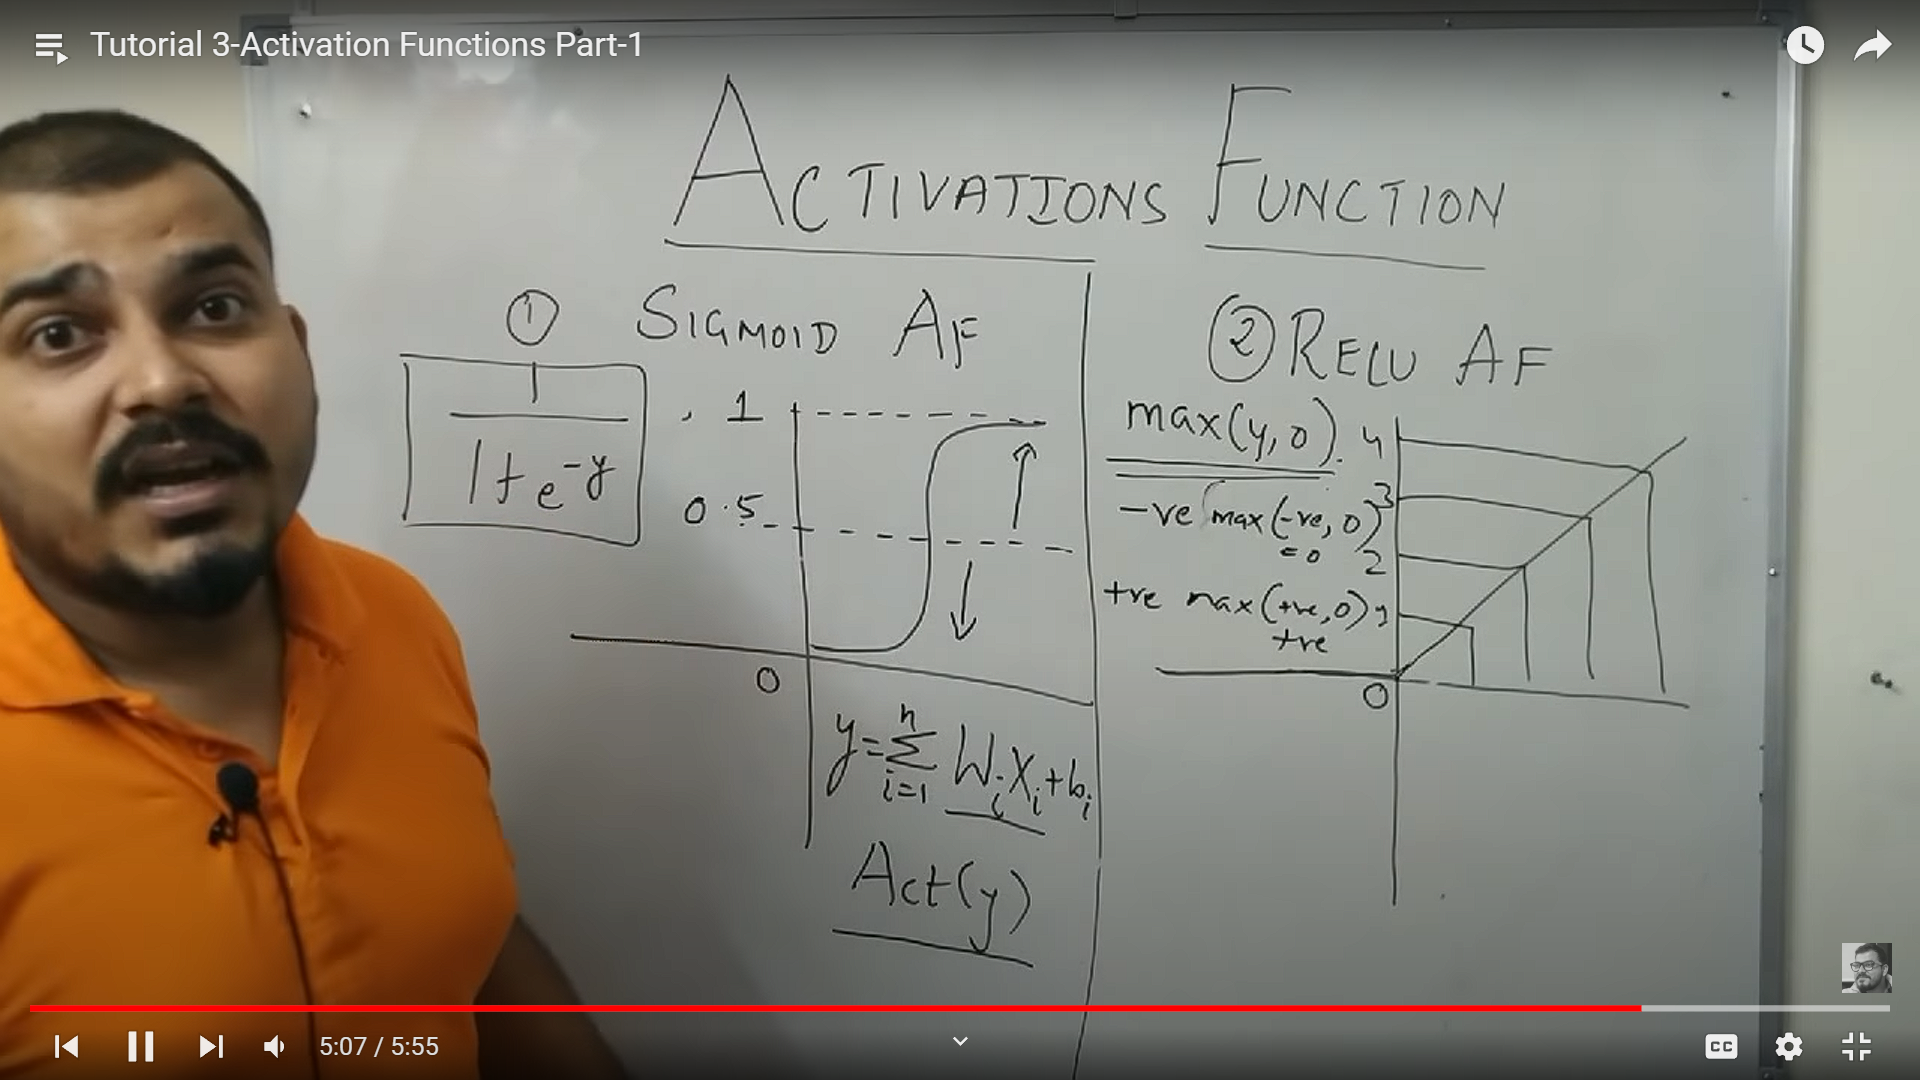 Tutorial 3-Activation Functions Part-1
ACTIVATIONS FUNCTION
① SIGMOID AF
1
1+e^-y
1
0.5
0
y=∑ i=1 n WiXi+bi
Act(y)
② RELU AF
max(y,0)
-ve max(-ve,0)
=0
+ve max(+ve,0)
+ve
4
3
2
1
0
5:07 / 5:55
CC